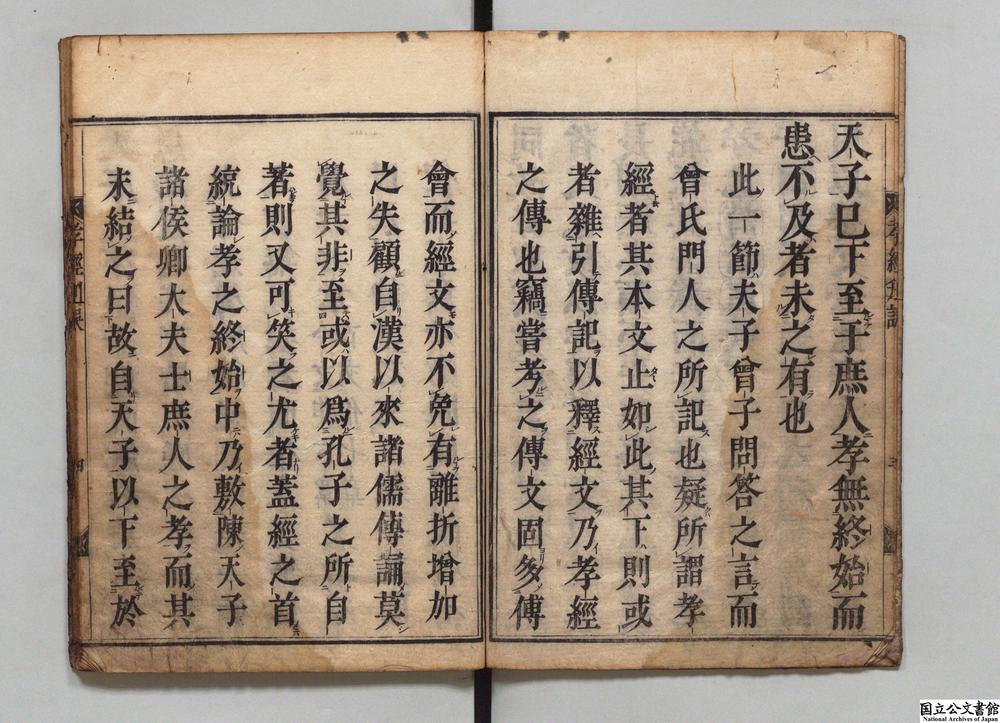 天子巳下至于庶人孝無終始而
患不及者未之有也
此一節夫子曾子問答之言而
曾氏門人之所記也疑所謂孝
經者其本文止如此其下則或
者雜引傳記以釋經文乃孝經
之傳也竊嘗考之傳文固多傅
會而經文亦不免有離折增加
之失顧自漢以來諸儒傳誦莫
覺其非至或以爲孔子之所自
著則又可笑之尤者蓋經之首
統論孝之終始中乃敷陳天子
諸侯卿大夫士庶人之孝而其
末結之曰故自天子以下至於
四
国立公文書館
National Archives of Japan